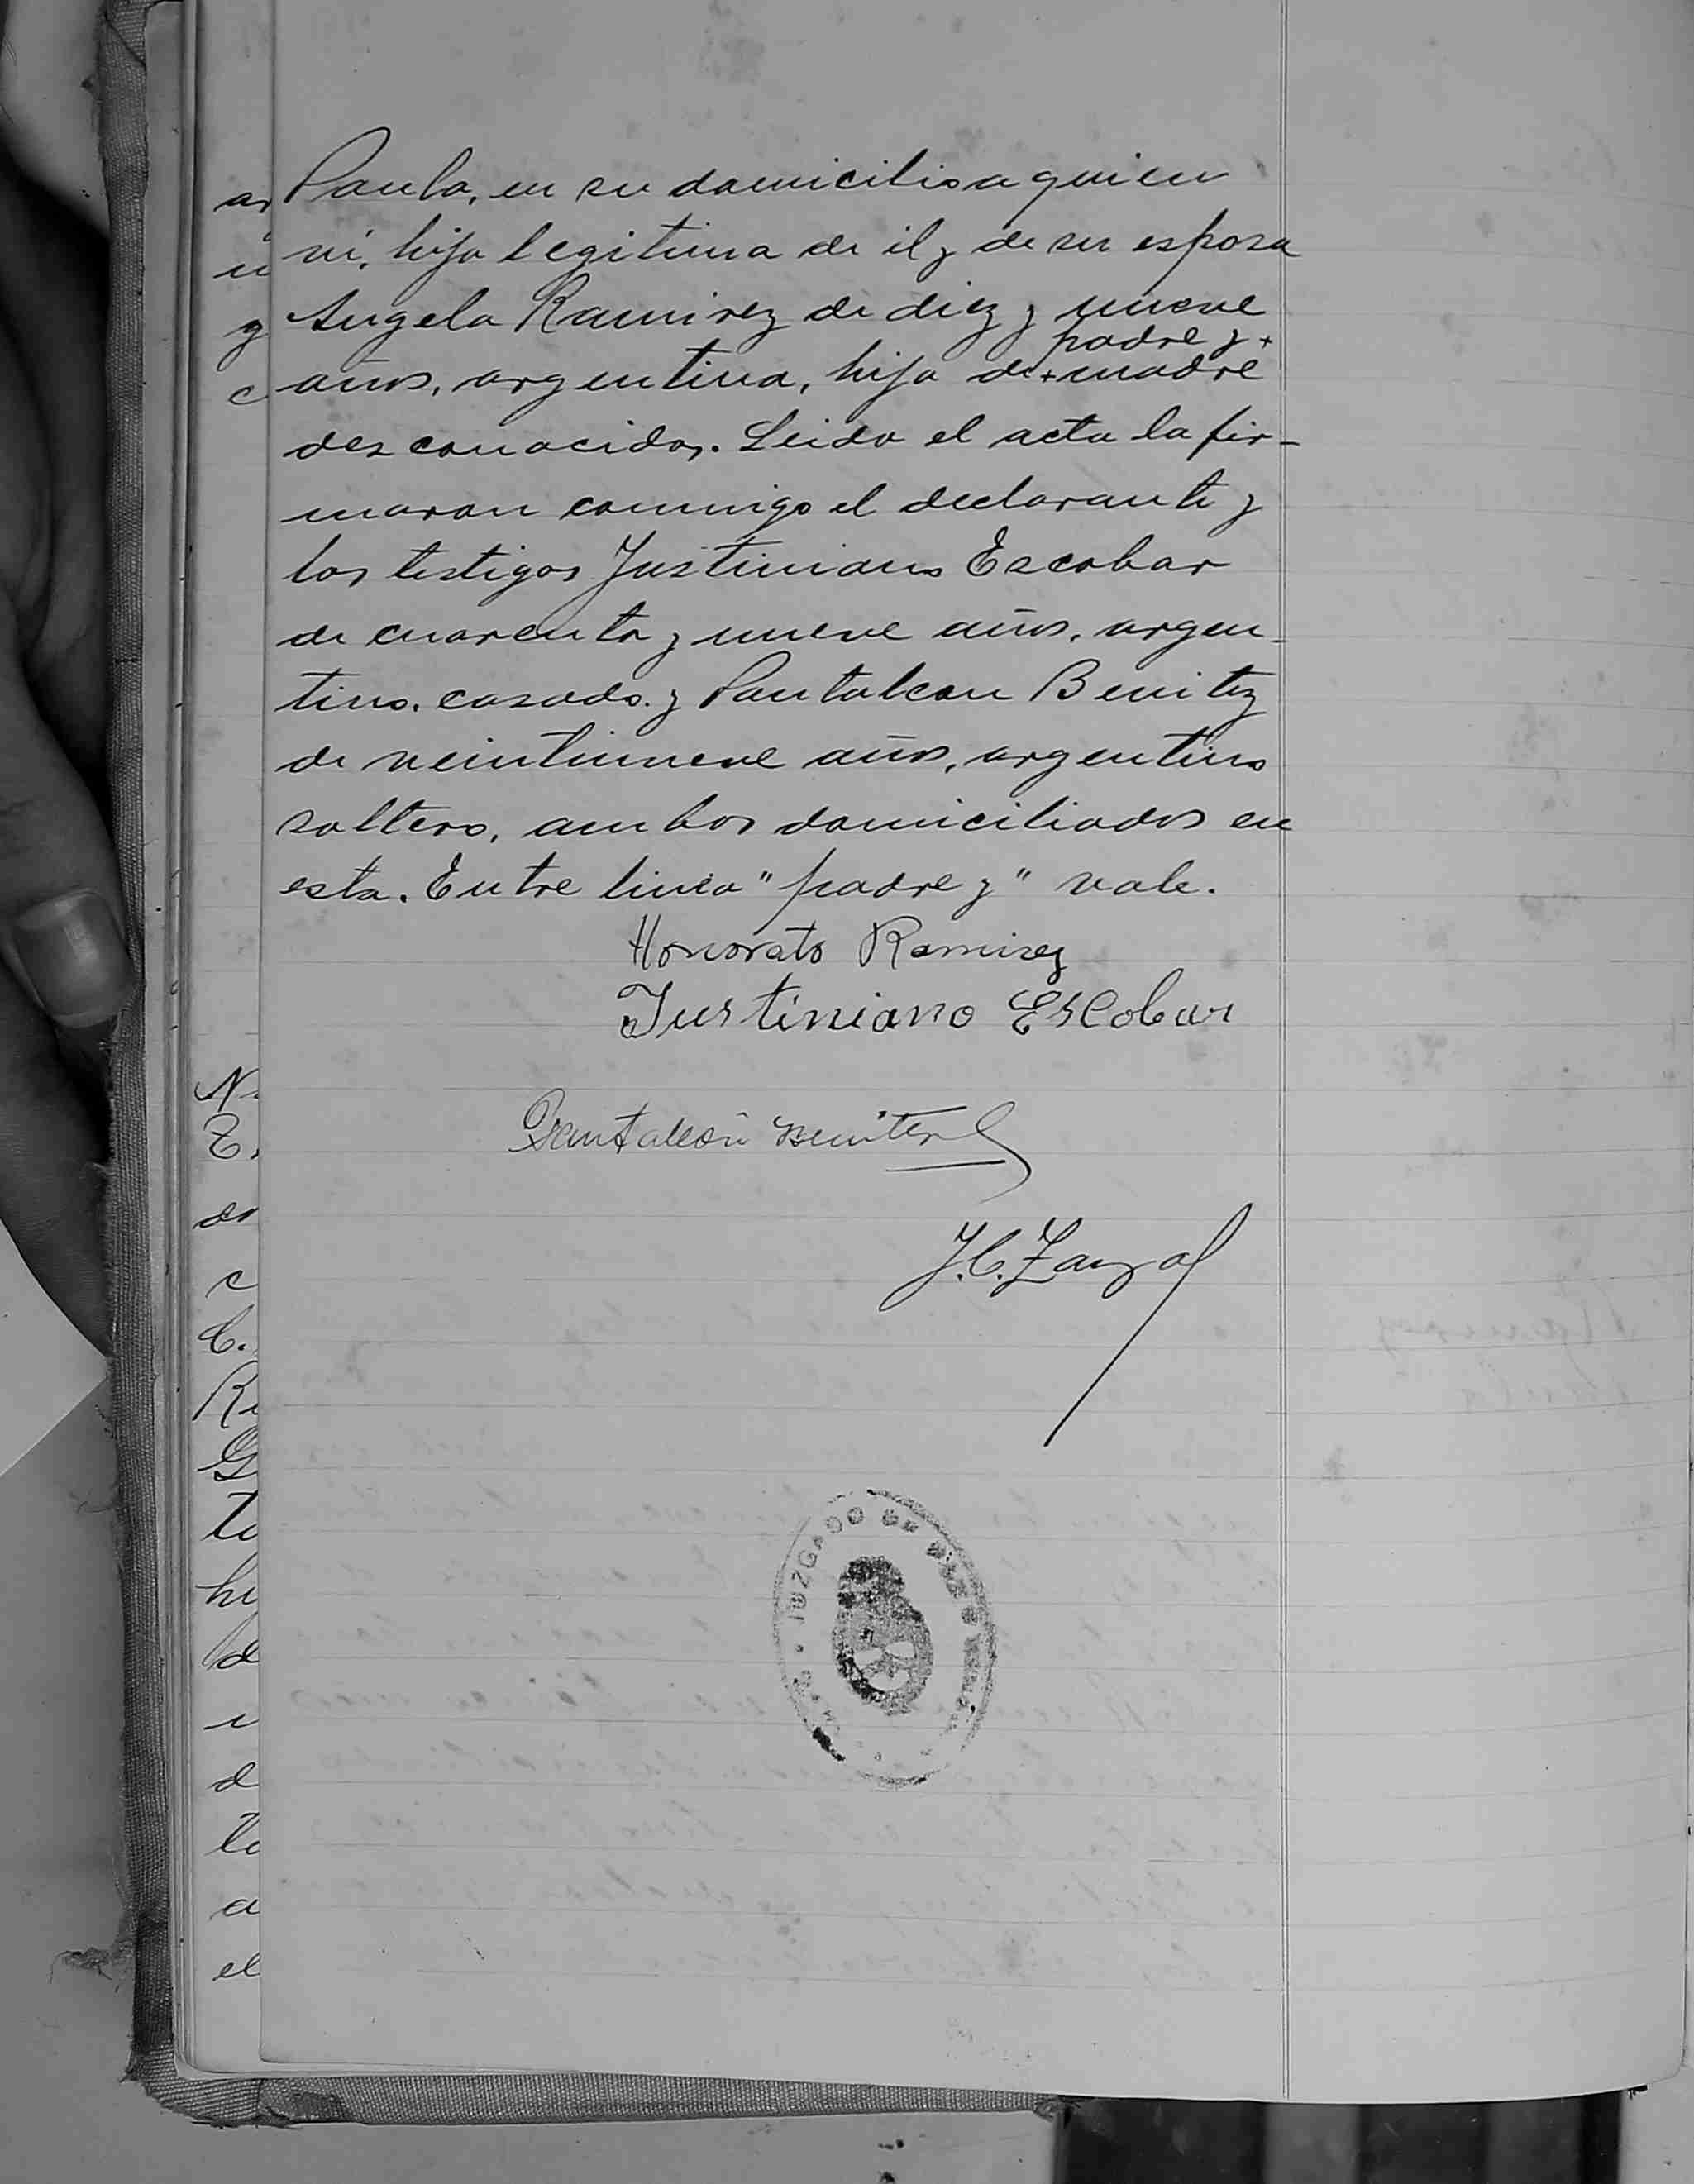 Paula, en su domicilio a quien
vi, hija legitima de él y de su esposa
Angela Ramirez de diez y nueve
padre y +
años, argentina, hija de + madre
desconocidos. Leida el acta la fir-
maron conmigo el declarante y
los testigos Justiniano Escobar
de cuarenta y nueve años, argen-
tino, casado. y Pantaleon Benitez
de veintinueve años, argentino
soltero, ambos domiciliados en
esta. Entre linea "padre y" vale.
Honorato Ramirez
Justiniano Escobar
Pantaleón Benitez
J.C.
JUZGADO DE